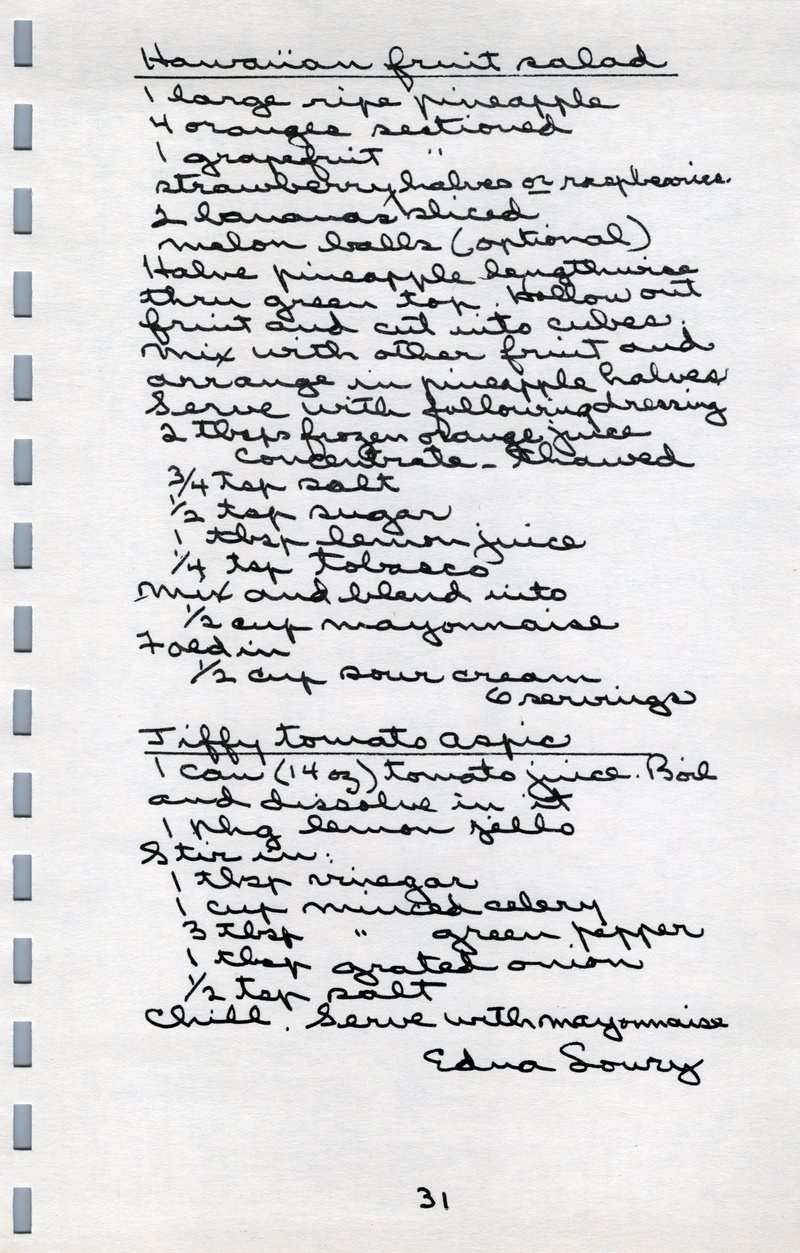 Hawaiian fruit salad
1 large ripe pineapple
4 oranges sectioned
1 grapefruit "
strawberry halves or raspberries.
2 bananas sliced
melon balls (optional)
Halve pineapple lengthwise
thru green top. Hollow out
fruit and cut into cubes.
Mix with other fruit and
arrange in pineapple halves
Serve with following dressing
2 tbsps frozen orange juice
concentrate - thawed
3/4 tsp salt
1/2 tsp sugar
1 tbsp lemon juice
1/4 tsp Tobasco
Mix and blend into
1/2 cup mayonnaise
Fold in
1/2 cup sour cream
6 servings
Jiffy tomato aspic
1 can (14 oz) tomato juice. Boil
and dissolve in it
1 pkg lemon jello
Stir in:
1 tbsp vinegar
1 cup minced celery
3 tbsp " green pepper
1 tbsp grated onion
1/2 tsp salt
Chill. Serve with mayonnaise
Edna Soury
31